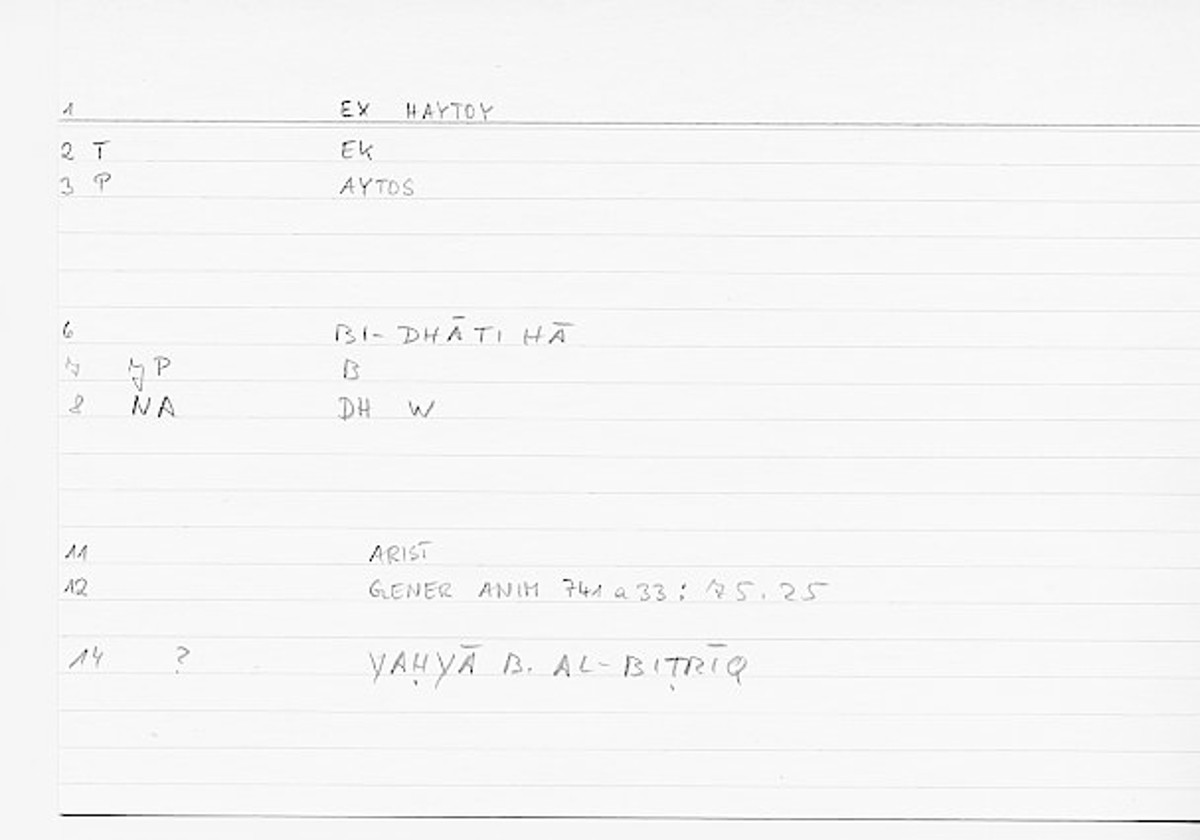 1 EX HAYTOY
2 T EK
3 P AYTOS
6 BI-DHĀTI HĀ
7 JP B
8 NA DH W
11 ARIST
12 GENER ANIM 741 a 33 : 75.25
14 ? YAḤYĀ B. AL-BIṬRĪQ